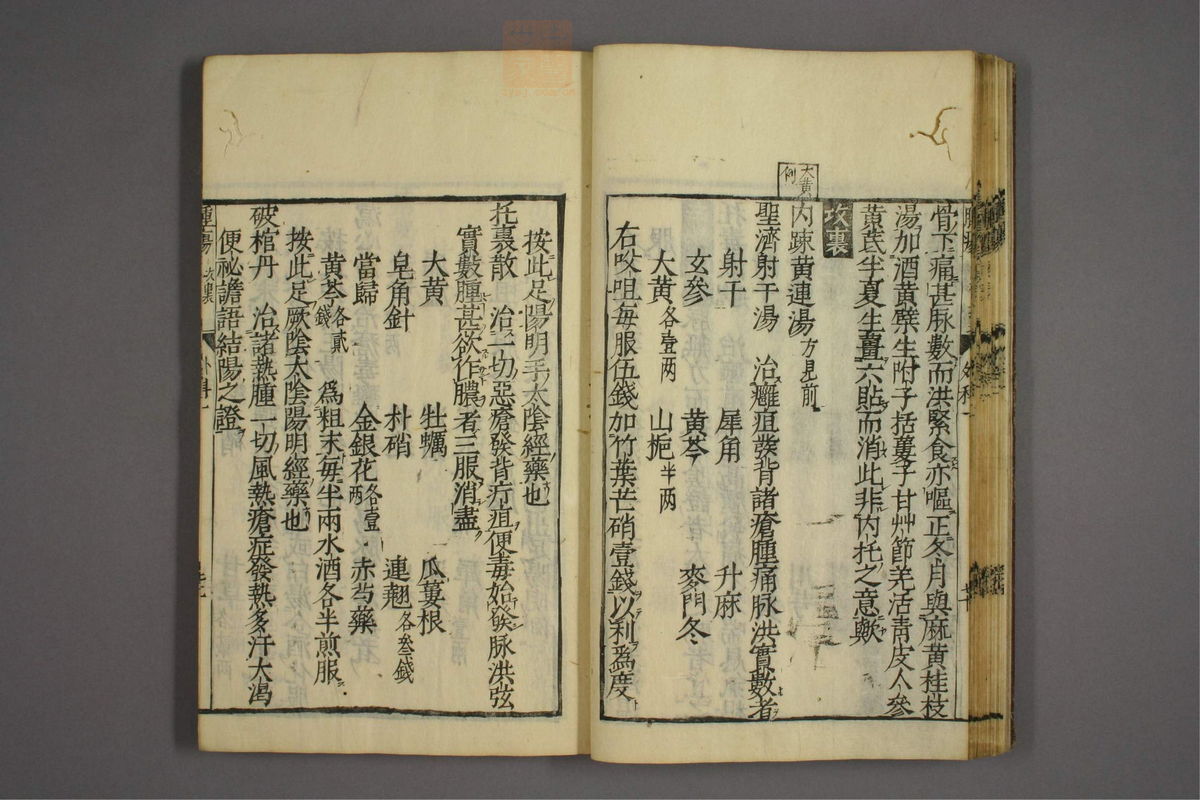 骨下痛甚脉數而洪緊食亦嘔正冬月與麻黄桂枝
湯加酒黄蘗生附子括蔞子甘艸節羌活青皮人參
黄茋半夏生薑六貼而消此非内托之意歟
攻裏
大黄例
内踈黄連湯方見前
聖濟射干湯 治癰疽發背諸瘡腫痛脉洪實數者
射干 犀角 升麻
玄參 黄芩 麥門冬
大黄各壹两 山梔半两
右㕮咀每服伍錢加竹葉芒硝壹錢以利爲度
按此足陽明手太陰經藥也
托裏散 治一切惡瘡發背疔疽便毒始發脉洪弦
實數腫甚欲作膿者三服消盡
大黄 牡蠣 瓜蔞根
皂角針 朴硝 連翹各叁錢
當歸 金銀花各壹两 赤芍藥
黄芩各貳錢 爲粗末每半兩水酒各半煎服
按此足厥陰太陰陽明經藥也
破棺丹 治諸熱腫一切風熱瘡症發熱多汗大渴
便祕譫語結陽之證
腫瘍 攻裏 外科一